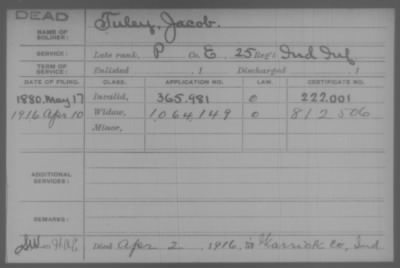 DEAD
NAME OF SOLDIER: Tuley, Jacob.
SERVICE: Late rank, P Co. E, 25 Reg't Ind Inf
TERM OF SERVICE: Enlisted , 1 Discharged , 1
DATE OF FILING. CLASS. APPLICATION NO. LAW. CERTIFICATE NO.
1880. May 17 Invalid, 365.981 0 222.001
1916 Apr 10 Widow, 1064149 0 812506
Minor,
ADDITIONAL SERVICES:
REMARKS:
Died Apr 2, 1916, in Warrick Co, Ind